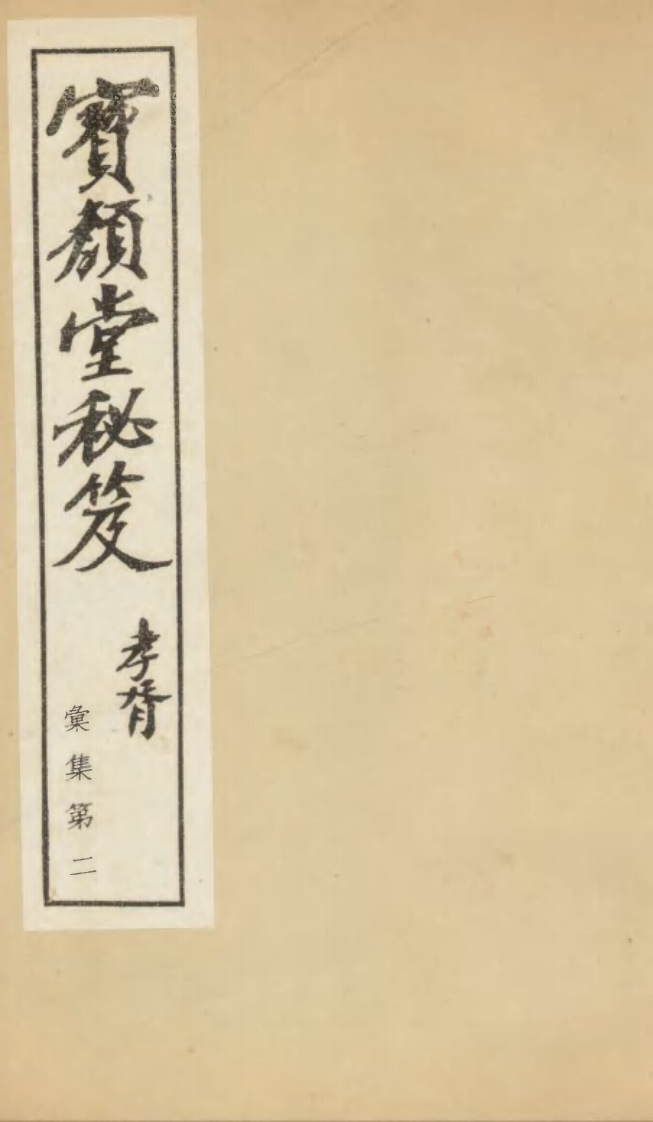 寶顏堂秘笈
孝胥
彙集第二